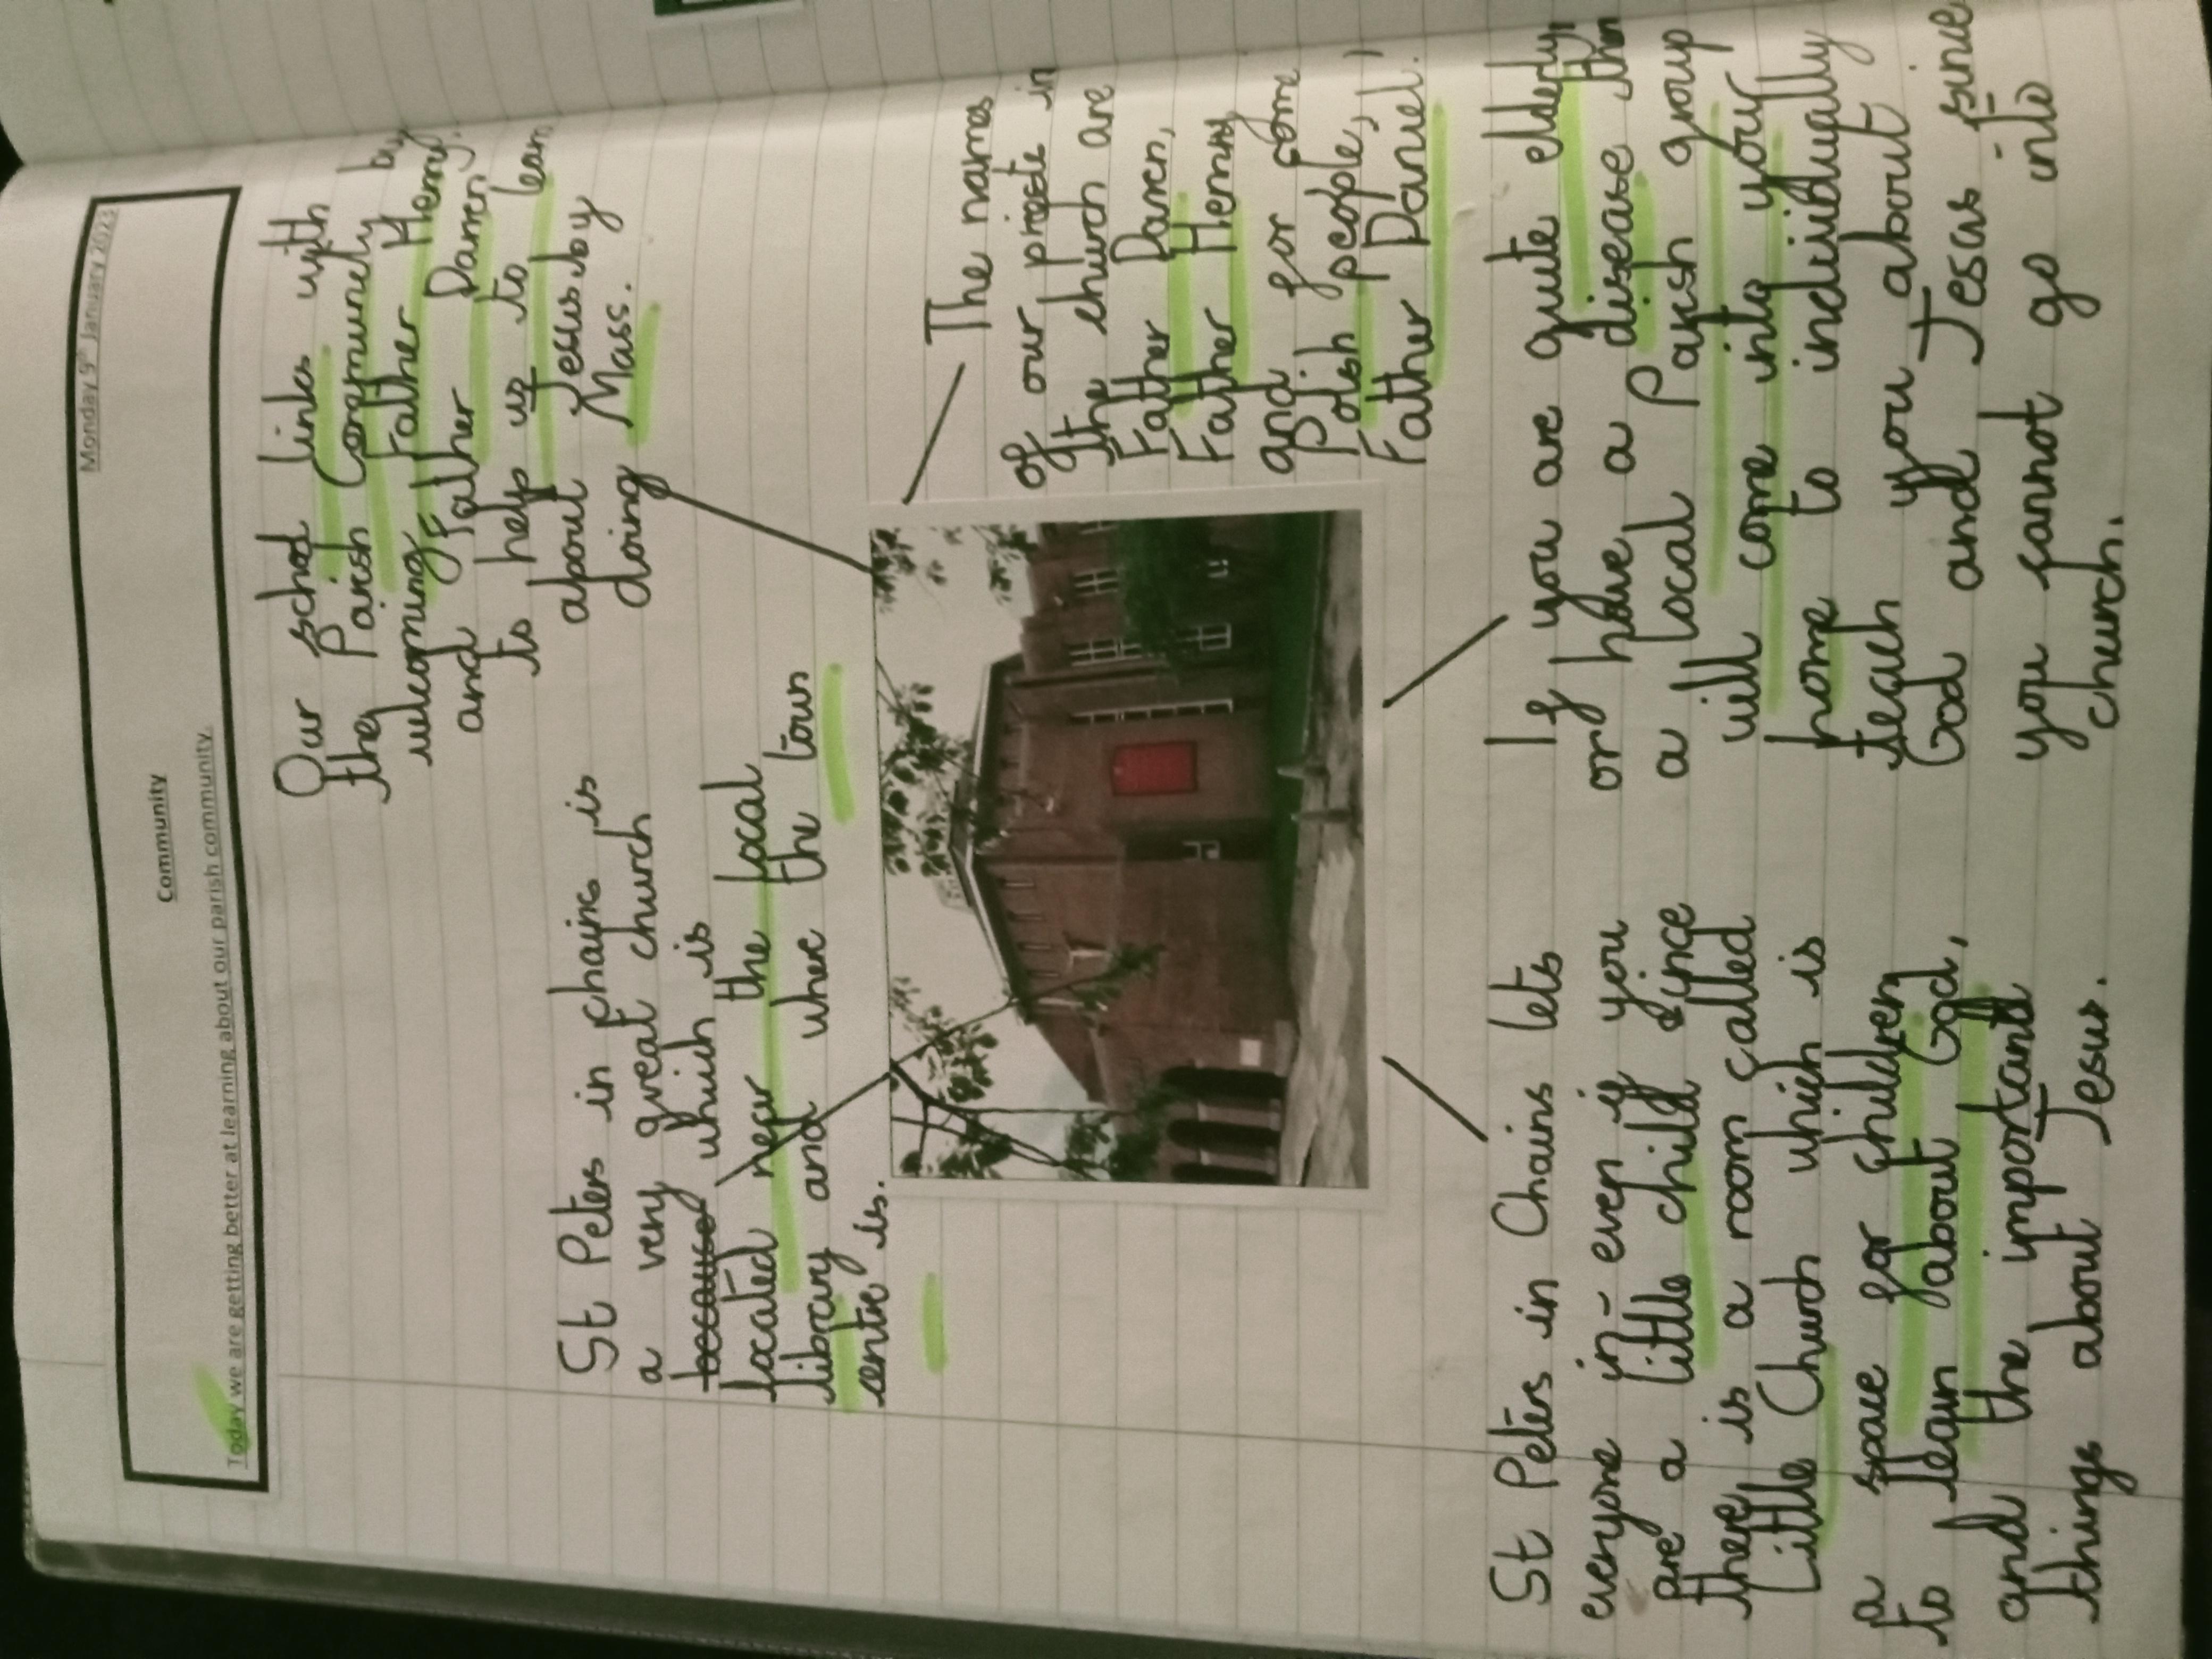 Monday 9th January 2023
Community
Today we are getting better at learning about our parish community.
Our school links with
the Parish Community by
welcoming Father Henry,
and Father Darren
to help us to learn
about Jesus by
doing Mass.
St Peters in chains is
a very great church
because which is
located near the local
library and where the town
centre is.
The names
of our prieste in
of the church are
Father Daren,
Father Henry
and for some
Polish people,
Father Daniel.
St Peters in Chains lets
everyone in- even if you
are a little child since
there is a room called
Little Church which is
a space for children
to learn about God,
and the important
things about Jesus.
If you are quite elderly,
or have a disease then
a local Parish group
will come into your
home to individually
teach you about
God and Jesus since
you cannot go into
church.